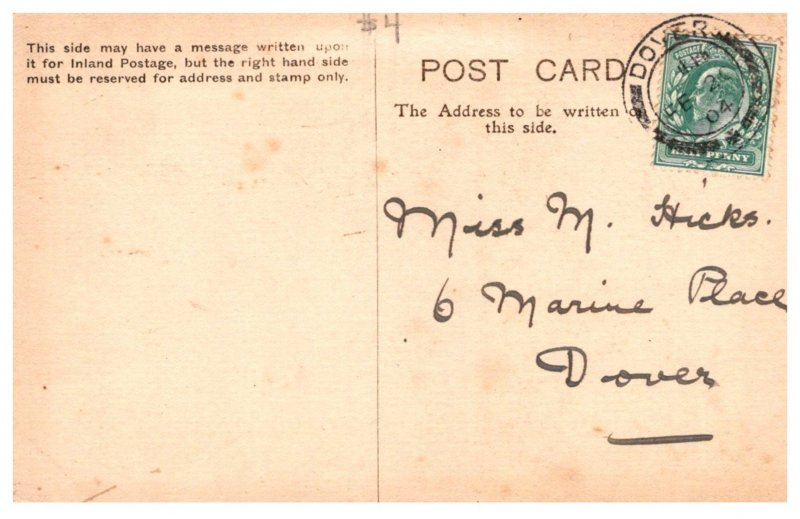 $4
This side may have a message written upon
it for Inland Postage, but the right hand side
must be reserved for address and stamp only.
POST CARD
The Address to be written
this side.
DOVER
FE
04
POSTAGE
HALF PENNY
Miss M. Hicks.
6 Marine Place
Dover